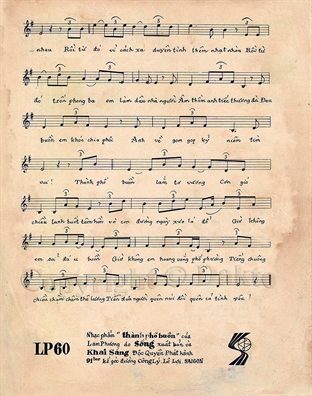 nhau Rồi từ đó vì cách xa duyên tình thêm nhạt nhòa Rồi từ
đó trốn phong ba em làm dâu nhà người Âm thầm anh tiếc thương đời Đau
buồn em khóc chia phôi Anh về gom góp kỷ niệm tìm
vui! Thành phố buồn lắm tơ vương Cơn gió
chiều lạnh buốt tâm hồn và con đường ngày xưa lá đổ! Giờ không
em sỏi đá u buồn Giờ không em hoang vắng phố phường Tiếng chuông
chiều chầm chậm thê lương Tiễn đưa người quên núi đồi quên cả tình yêu!
LP60
Nhạc phẩm "thành phố buồn" của
Lam Phương do Sóng xuất bản và
Khai Sáng Độc Quyền Phát hành
91ter kế góc đường Công Lý, Lê Lợi, SAIGON